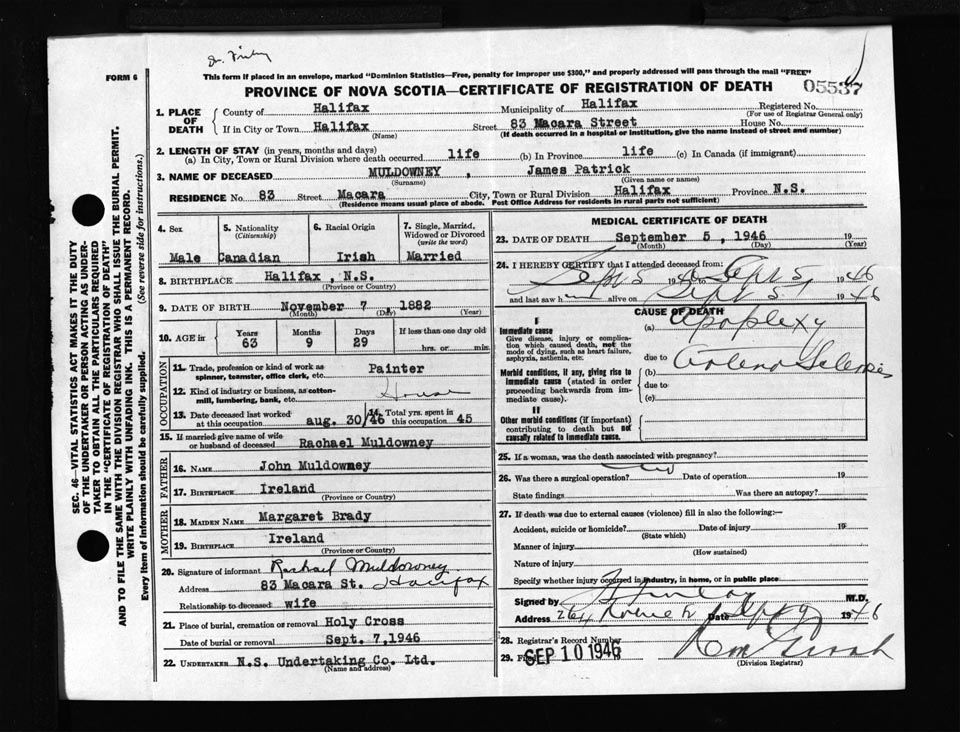 Dr. Finlay
FORM 6
This form if placed in an envelope, marked "Dominion Statistics—Free, penalty for improper use $300," and properly addressed will pass through the mail "FREE"
PROVINCE OF NOVA SCOTIA—CERTIFICATE OF REGISTRATION OF DEATH
05537
1. PLACE OF DEATH
County of Halifax Municipality of Halifax Registered No.
(For use of Registrar General only)
If in City or Town Halifax Street 83 Macara Street House No.
(Name) (If death occurred in a hospital or institution, give the name instead of street and number)
2. LENGTH OF STAY (in years, months and days)
(a) In City, Town or Rural Division where death occurred life (b) In Province life (c) In Canada (if immigrant)
3. NAME OF DECEASED MULDOWNEY , James Patrick
(Surname) (Given name or names)
RESIDENCE No. 83 Street Macara City, Town or Rural Division Halifax Province N.S.
(Residence means usual place of abode. Post Office Address for residents in rural parts not sufficient)
4. Sex
Male
5. Nationality
(Citizenship)
Canadian
6. Racial Origin
Irish
7. Single, Married, Widowed or Divorced
(write the word)
Married
8. BIRTHPLACE Halifax, N.S.
(Province or Country)
9. DATE OF BIRTH November 7 1882
(Month) (Day) (Year)
10. AGE in
Years Months Days If less than one day old
63 9 29 hrs. or min.
OCCUPATION
11. Trade, profession or kind of work as spinner, teamster, office clerk, etc. Painter
12. Kind of industry or business, as cotton-mill, lumbering, bank, etc. House
13. Date deceased last worked at this occupation aug. 30/46
14. Total yrs. spent in this occupation 45
15. If married give name of wife or husband of deceased Rachael Muldowney
FATHER
16. NAME John Muldowney
17. BIRTHPLACE Ireland
(Province or Country)
MOTHER
18. MAIDEN NAME Margaret Brady
19. BIRTHPLACE Ireland
(Province or Country)
20. Signature of informant Rachael Muldowney
Address 83 Macara St. Halifax
Relationship to deceased wife
21. Place of burial, cremation or removal Holy Cross
Date of burial or removal Sept. 7, 1946
22. UNDERTAKER N.S. Undertaking Co. Ltd.
(Name and address)
MEDICAL CERTIFICATE OF DEATH
23. DATE OF DEATH September 5, 1946 19
(Month) (Day) (Year)
24. I HEREBY CERTIFY that I attended deceased from:
Sept 5 46 to Sept 5, 1946
and last saw him alive on Sept 5 1946
CAUSE OF DEATH
I
Immediate cause
Give disease, injury or complication which caused death, not the mode of dying, such as heart failure, asphyxia, asthenia, etc.
(a) Apoplexy
due to
Morbid conditions, if any, giving rise to immediate cause (stated in order proceeding backwards from immediate cause).
(b)
due to
(c)
II
Other morbid conditions (if important) contributing to death but not causally related to immediate cause.
25. If a woman, was the death associated with pregnancy?
26. Was there a surgical operation? No Date of operation 19
State findings Was there an autopsy?
27. If death was due to external causes (violence) fill in also the following:—
Accident, suicide or homicide? Date of injury 19
(State which)
Manner of injury
(How sustained)
Nature of injury
Specify whether injury occurred in industry, in home, or in public place
Signed by M.D.
Address Date 1946
28. Registrar's Record Number
29. SEP 10 1946
(Division Registrar)
SEC. 46—VITAL STATISTICS ACT MAKES IT THE DUTY
OF THE UNDERTAKER OR PERSON ACTING AS UNDER-
TAKER TO OBTAIN ALL THE PARTICULARS REQUIRED
IN THE "CERTIFICATE OF REGISTRATION OF DEATH"
AND TO FILE THE SAME WITH THE DIVISION REGISTRAR WHO SHALL ISSUE THE BURIAL PERMIT.
WRITE PLAINLY WITH UNFADING INK. THIS IS A PERMANENT RECORD.
Every item of information should be carefully supplied. (See reverse side for instructions.)